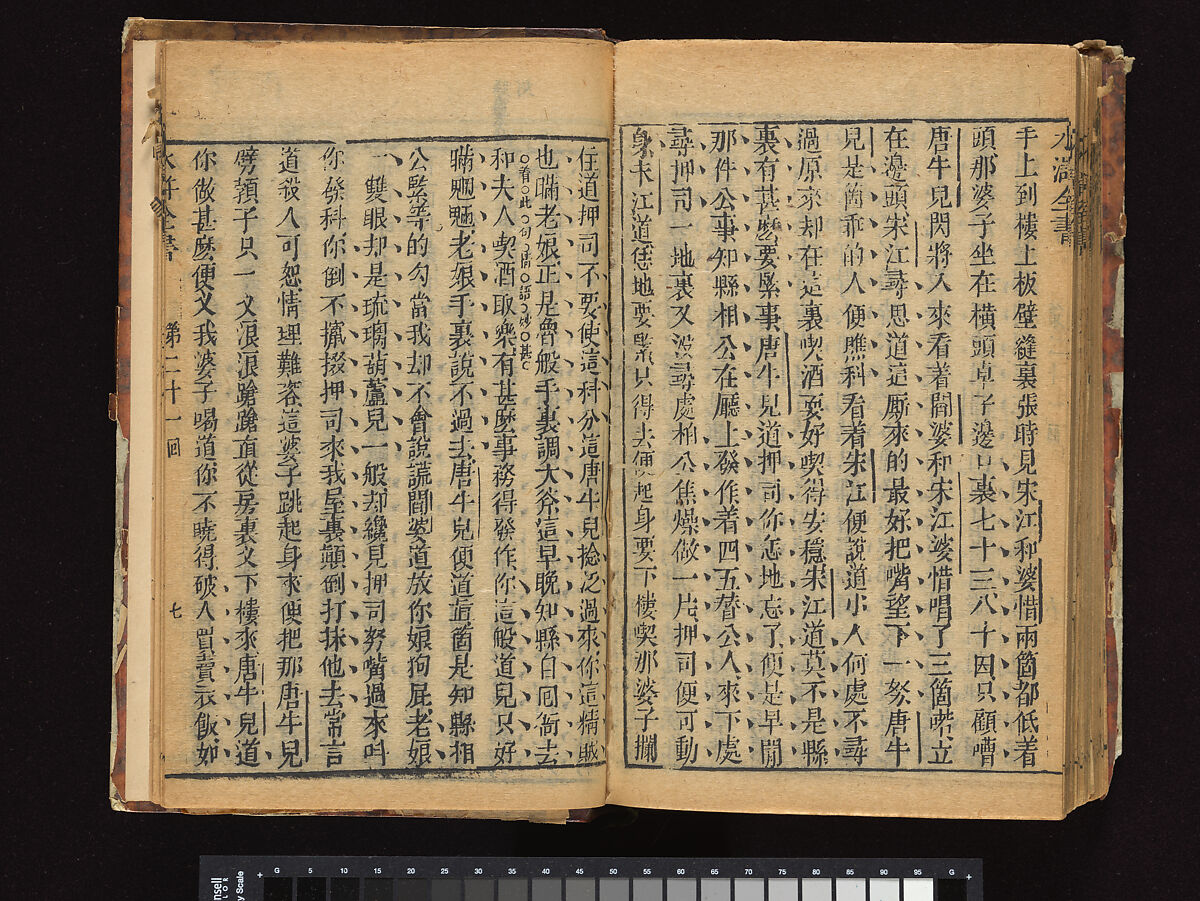 水滸全書
手上到樓上板壁縫裏張時見宋江和婆惜兩箇都低着
頭那婆子坐在橫頭卓子邊口裏七十三八十四只顧嘈
唐牛兒閃將入來看着閻婆和宋江婆惜唱了三箇喏立
在邊頭宋江尋思道這廝來的最好把嘴望下一努唐牛
兒是箇乖的人便瞧科看着宋江便說道小人何處不尋
過原來却在這裏喫酒耍好喫得安穩宋江道莫不是縣
裏有甚麽要緊事唐牛兒道押司你怎地忘了便是早間
那件公事知縣相公在廳上發作着四五替公人來下處
尋押司一地裏又沒尋處相公焦燥做一片押司便可動
身宋江道恁地要緊只得去便起身要下樓喫那婆子攔
住道押司不要使這科分這唐牛兒捻泛過來你這精賊
也瞞老娘正是魯般手裏調大斧這早晚知縣自囘衙去
看此句情語妙甚
和夫人喫酒取樂有甚麽事務得發作你這般道兒只好
瞞魍魎老娘手裏說不過去唐牛兒便道這箇是知縣相
公緊等的勾當我却不會說謊閻婆道放你娘狗屁老娘
一雙眼却是琉璃葫蘆兒一般却纔見押司努嘴過來叫
你發科你倒不攛掇押司來我屋裏顛倒打抹他去常言
道殺人可恕情理難容這婆子跳起身來便把那唐牛兒
劈頸子只一叉浪浪蹌蹌直從房裏叉下樓來唐牛兒道
你做甚麽便叉我婆子喝道你不曉得破人買賣衣飯如
水滸全書
第二十一回
七
G 5 10 15 20 25 30 35 40 45 50 55 60 65 70 75 80 85 90 95 G